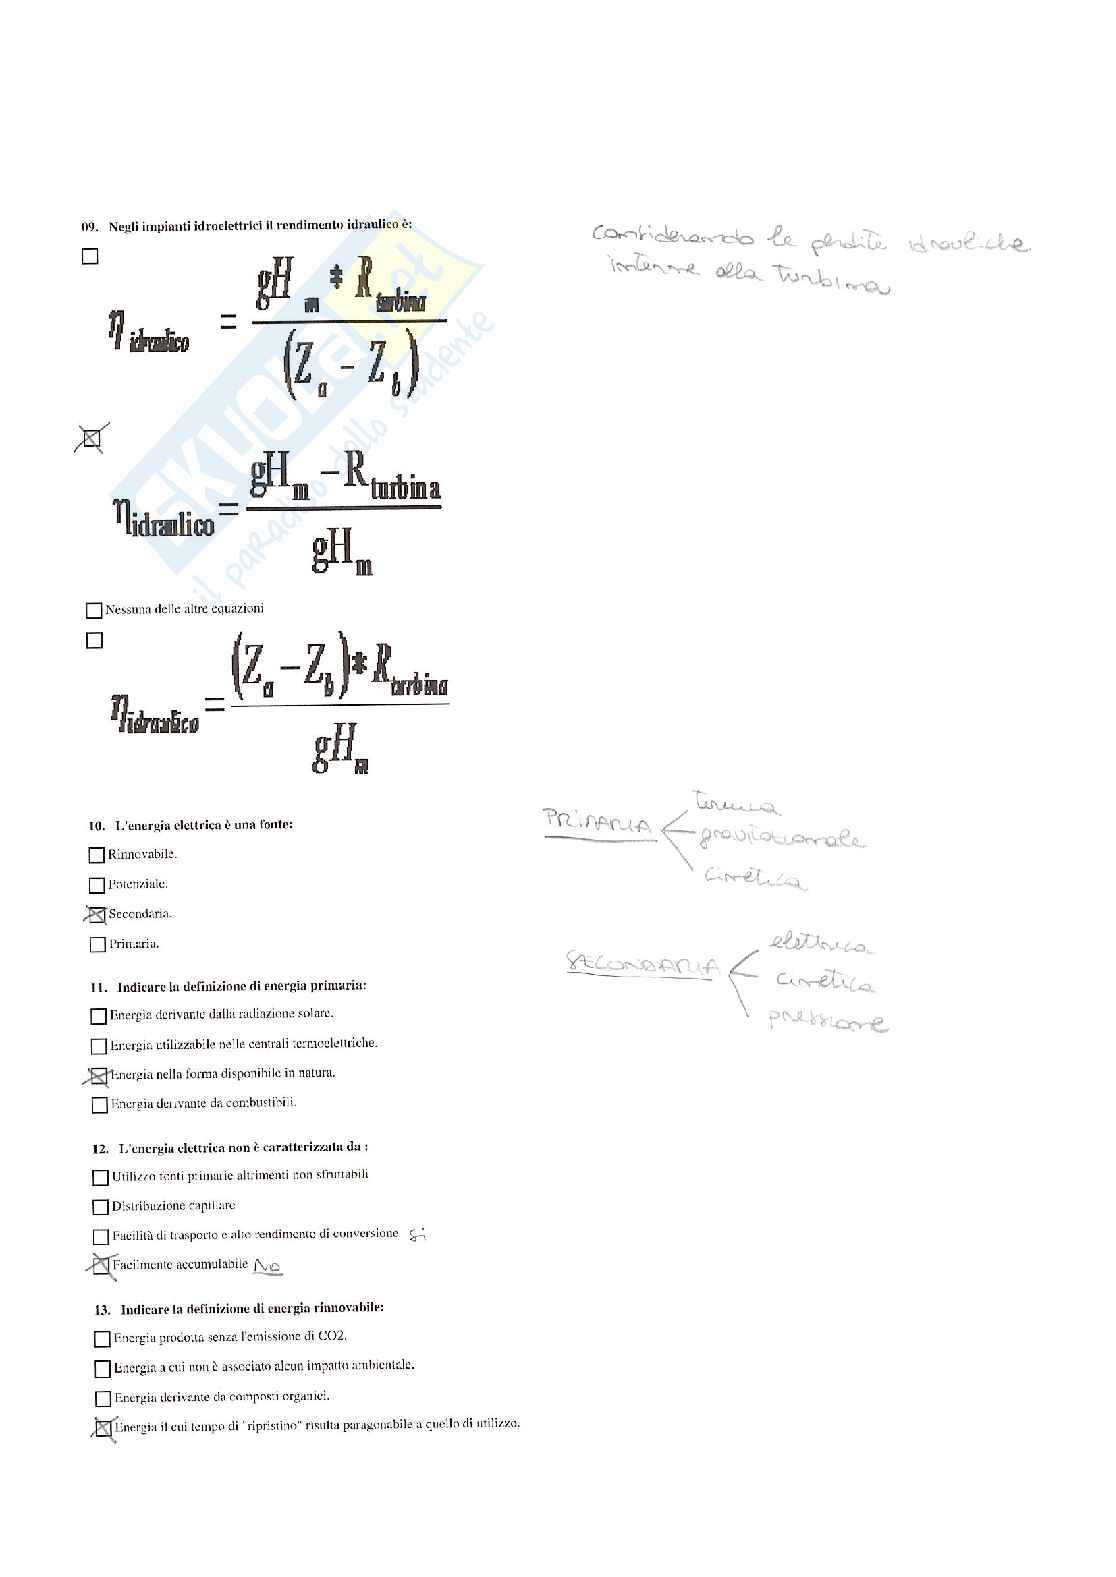 09. Negli impianti idroelettrici il rendimento idraulico è:
considerando le perdite idrauliche
interne alla turbina
η idraulico = gH m * R turbina / (Z a - Z b)
η idraulico = gH m - R turbina / gH m
Nessuna delle altre equazioni
η idraulico = (Z a - Z b) * R turbina / gH m
SKUOLA.net
il paradiso dello studente
10. L'energia elettrica è una fonte:
Rinnovabile.
Potenziale.
Secondaria.
Primaria.
PRIMARIA
termica
gravitazionale
cinetica
SECONDARIA
elettrica
cinetica
pressione
11. Indicare la definizione di energia primaria:
Energia derivante dalla radiazione solare.
Energia utilizzabile nelle centrali termoelettriche.
Energia nella forma disponibile in natura.
Energia derivante da combustibili.
12. L'energia elettrica non è caratterizzata da :
Utilizzo fonti primarie altrimenti non sfruttabili
Distribuzione capillare
Facilità di trasporto e alto rendimento di conversione si
Facilmente accumulabile No
13. Indicare la definizione di energia rinnovabile:
Energia prodotta senza l'emissione di CO2.
Energia a cui non è associato alcun impatto ambientale.
Energia derivante da composti organici.
Energia il cui tempo di "ripristino" risulta paragonabile a quello di utilizzo.